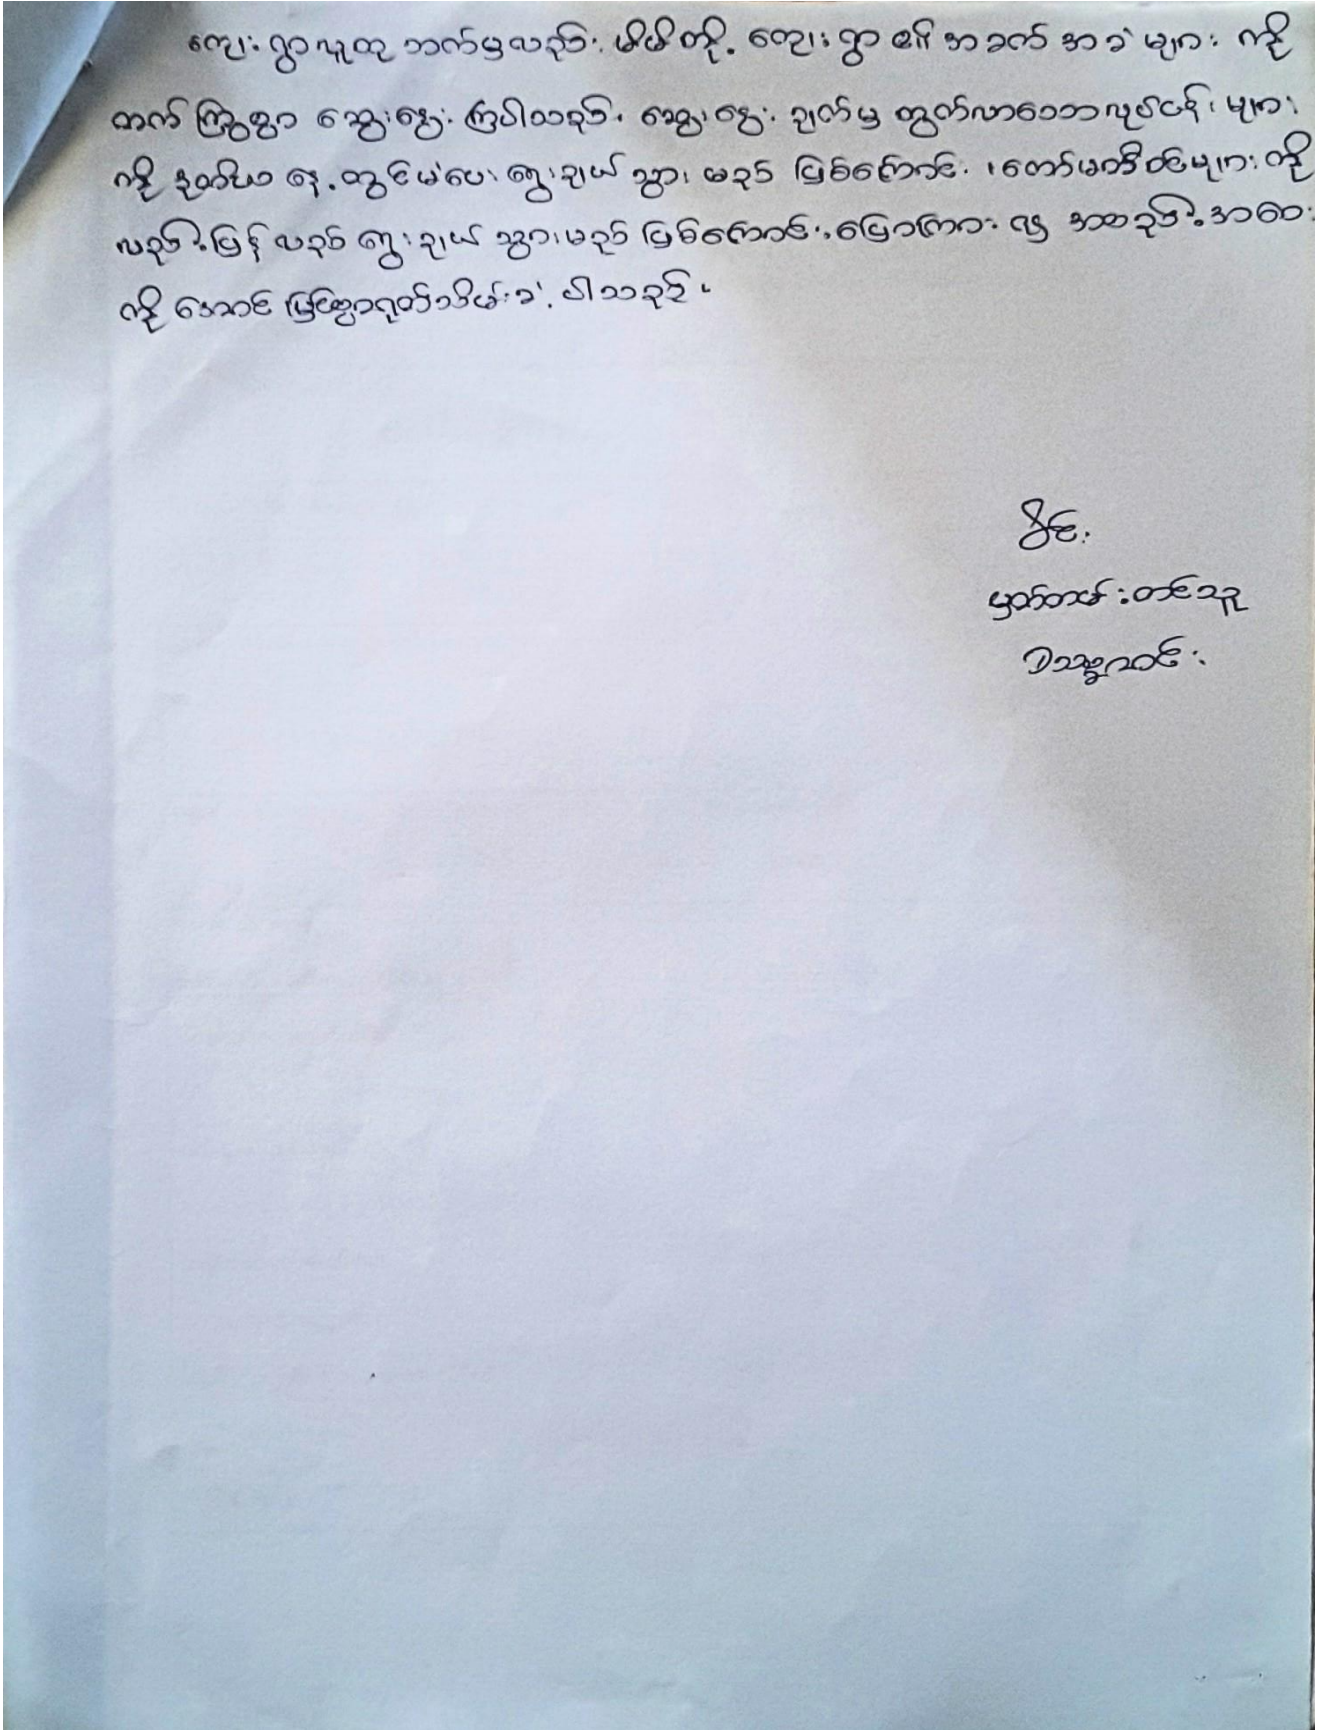 ကျေးရွာလူထုဘက်မှလည်း မိမိတို့ ကျေးရွာ၏ အခက်အခဲများကို
တက်ကြွစွာ ဆွေးနွေးကြပါသည်။ ဆွေးနွေးချက်မှ ထွက်လာသောလုပ်ငန်းများ
ကို ဒုတိယနေ့တွင်မဲပေးရွေးချယ်သွားမည် ဖြစ်ကြောင်း၊ ကော်မတီဝင်များကို
လည်းပြန်လည်ရွေးချယ်သွားမည်ဖြစ်ကြောင်းပြောကြား၍ အစည်းအဝေး
ကို အောင်မြင်စွာရုပ်သိမ်းခဲ့ပါသည်။
ဝိုင်း
မှတ်တမ်းတင်သူ